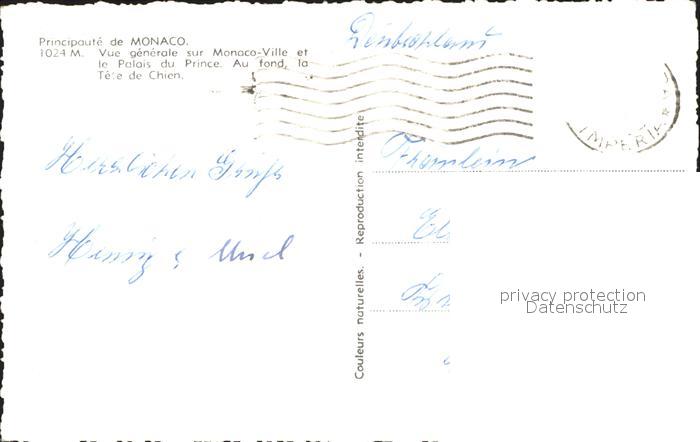 Principauté de MONACO.
1024 M. Vue générale sur Monaco-Ville et
le Palais du Prince. Au fond, la
Tête de Chien.
Deutschland
IMPERIA
Herzlichen Gruß
Henny &
Couleurs naturelles. - Reproduction interdite
Fräulein
El
privacy protection
Datenschutz